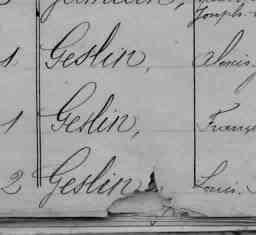 Joseph
1 Geslin, Louis
1 Geslin, Franç
2 Geslin Louis